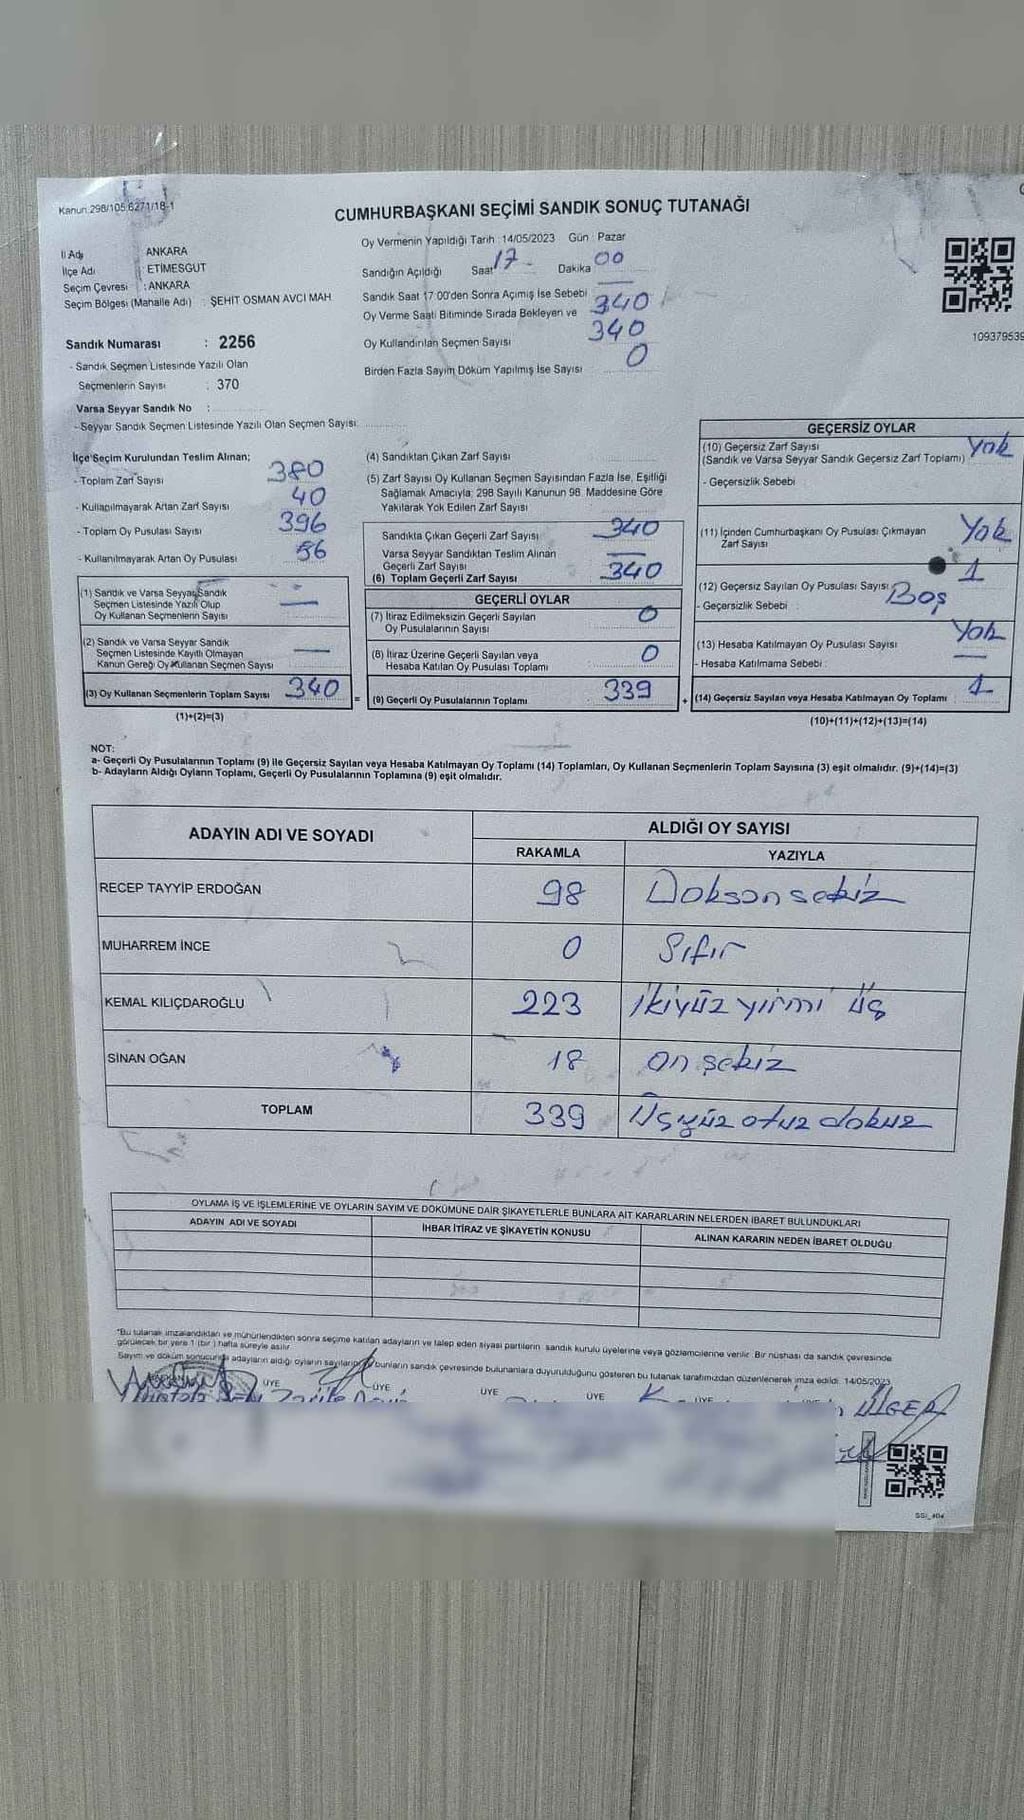 Kanun:298/105 6271/18-1
CUMHURBAŞKANI SEÇİMİ SANDIK SONUÇ TUTANAĞI
Oy Vermenin Yapıldığı Tarih :14/05/2023 Gün : Pazar
İl Adı ANKARA
İlçe Adı : ETİMESGUT
Seçim Çevresi : ANKARA
Seçim Bölgesi (Mahalle Adı) : ŞEHİT OSMAN AVCI MAH
Sandığın Açıldığı Saat 17 - Dakika 00
Sandık Saat 17 00'den Sonra Açımış İse Sebebi
Oy Verme Saati Bitiminde Sırada Bekleyen ve 340
Oy Kullandırılan Seçmen Sayısı 340
Birden Fazla Sayım Döküm Yapılmış İse Sayısı 0
109379539
Sandık Numarası : 2256
- Sandık Seçmen Listesinde Yazılı Olan
Seçmenlerin Sayısı : 370
Varsa Seyyar Sandık No :
- Seyyar Sandık Seçmen Listesinde Yazılı Olan Seçmen Sayısı:
İlçe Seçim Kurulundan Teslim Alınan;
- Toplam Zarf Sayısı 380
- Kullanılmayarak Artan Zarf Sayısı 40
- Toplam Oy Pusulası Sayısı 396
- Kullanılmayarak Artan Oy Pusulası 56
(1) Sandık ve Varsa Seyyar Sandık
Seçmen Listesinde Yazılı Olup
Oy Kullanan Seçmenlerin Sayısı —
(2) Sandık ve Varsa Seyyar Sandık
Seçmen Listesinde Kayıtlı Olmayan
Kanun Gereği Oy Kullanan Seçmen Sayısı —
(3) Oy Kullanan Seçmenlerin Toplam Sayısı 340 =
(1)+(2)=(3)
(4) Sandıktan Çıkan Zarf Sayısı
(5) Zarf Sayısı Oy Kullanan Seçmen Sayısından Fazla İse, Eşitliği
Sağlamak Amacıyla; 298 Sayılı Kanunun 98. Maddesine Göre
Yakılarak Yok Edilen Zarf Sayısı
Sandıkta Çıkan Geçerli Zarf Sayısı 340
Varsa Seyyar Sandıktan Teslim Alınan
Geçerli Zarf Sayısı —
(6) Toplam Geçerli Zarf Sayısı 340
GEÇERLİ OYLAR
(7) İtiraz Edilmeksizin Geçerli Sayılan
Oy Pusulalarının Sayısı 0
(8) İtiraz Üzerine Geçerli Sayılan veya
Hesaba Katılan Oy Pusulası Toplamı 0
(9) Geçerli Oy Pusulalarının Toplamı 339 +
GEÇERSİZ OYLAR
(10) Geçersiz Zarf Sayısı Yok
(Sandık ve Varsa Seyyar Sandık Geçersiz Zarf Toplamı)
- Geçersizlik Sebebi :
(11) İçinden Cumhurbaşkanı Oy Pusulası Çıkmayan Yok
Zarf Sayısı
(12) Geçersiz Sayılan Oy Pusulası Sayısı 1
- Geçersizlik Sebebi : Boş
(13) Hesaba Katılmayan Oy Pusulası Sayısı Yok
- Hesaba Katılmama Sebebi : —
(14) Geçersiz Sayılan veya Hesaba Katılmayan Oy Toplamı 1
(10)+(11)+(12)+(13)=(14)
NOT:
a- Geçerli Oy Pusulalarının Toplamı (9) ile Geçersiz Sayılan veya Hesaba Katılmayan Oy Toplamı (14) Toplamları, Oy Kullanan Seçmenlerin Toplam Sayısına (3) eşit olmalıdır. (9)+(14)=(3)
b- Adayların Aldığı Oyların Toplamı, Geçerli Oy Pusulalarının Toplamına (9) eşit olmalıdır.
ADAYIN ADI VE SOYADI ALDIĞI OY SAYISI
RAKAMLA YAZIYLA
RECEP TAYYİP ERDOĞAN 98 Doksan sekiz
MUHARREM İNCE 0 Sıfır
KEMAL KILIÇDAROĞLU 223 İkiyüz yirmi üç
SİNAN OĞAN 18 on sekiz
TOPLAM 339 Üçyüz otuz dokuz
OYLAMA İŞ VE İŞLEMLERİNE VE OYLARIN SAYIM VE DÖKÜMÜNE DAİR ŞİKAYETLERLE BUNLARA AİT KARARLARIN NELERDEN İBARET BULUNDUKLARI
ADAYIN ADI VE SOYADI İHBAR İTİRAZ VE ŞİKAYETİN KONUSU ALINAN KARARIN NEDEN İBARET OLDUĞU
"Bu tutanak imzalandıktan ve mühürlendikten sonra seçime katılan adayların ve talep eden siyasi partilerin sandık kurulu üyelerine veya gözlemcilerine verilir. Bir nüshası da sandık çevresinde
görülecek bir yere 1 (bir) hafta süreyle asılır
Sayım ve döküm sonucunda adayların aldığı oyların sayılarını bunların sandık çevresinde bulunanlara duyurulduğunu gösteren bu tutanak tarafımızdan düzenlenerek imza edildi. 14/05/2023
ÜYE ÜYE ÜYE ÜYE ÜYE
ÜLGER